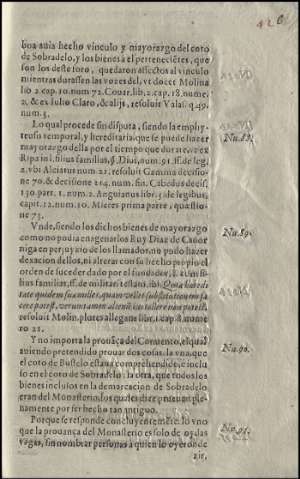 426
boa auia hecho vinculo y mayorazgo del coto
de Sobradelo, y los bienes à el perteneciẽtes, que
son los deste foro, quedaron affectos al vinculo
mientras durassen las vozes del, vt docet Molina
lib. 2. cap. 10. num. 72. Couar. lib. 2. cap. 18. nume.
2. & ex Iulio Claro, & alijs, resoluit Valas. q. 49.
num. 5.
Lo qual procede sin disputa, siendo la emphy-
teusis temporal, y hereditaria, que se puede hazer
mayorazgo della por el tiempo que durare, ex
Ripa in l. filius familias, §. Diui, num. 91. ff. de leg.
2. vbi Alciatus num. 21. resoluit Gamma decisio
ne 70. & decisione 214. num. fin. Cabedus decis.
130. part. 1. num. 2. Anguianus lib. 3. de legibus,
capit. 12. num. 10. Mieres prima parte, quæstio-
ne 73.
Nu. 88.
Vnde, siendo los dichos bienes de mayorazgo
como no podia enagenarlos Ruy Diaz de Cador
niga en perjuyzio de los llamados, no pudo hazer
dexacion dellos, ni alterar con su hecho propio el
orden de suceder dado por el fundador, &
filius familias, ff. de militari testam. ibi.
resoluit Molin. plures allegans lib. 1. cap. 8. nume
ro 21.
Nu. 89.
Y no importa la prouãça del Conuento, el qual
auiendo pretendido prouar dos cosas, la vna, que
el coto de Bustelo estaua comprehendido, è inclu
so en el coto de Sobradelo: la otra, que todos los
bienes inclusos en la demarcacion de Sobradelo
eran del Monasterio, los quales dize presumpt ple
namente por ser hecho tan antiguo.
Nu. 90.
Porque se responde concluyentemẽte, lo vno
que la prouança del Monasterio es solo de oydas
vagas, sin nombrar personas à quien lo oyeron de
Nu. 91.
zir,